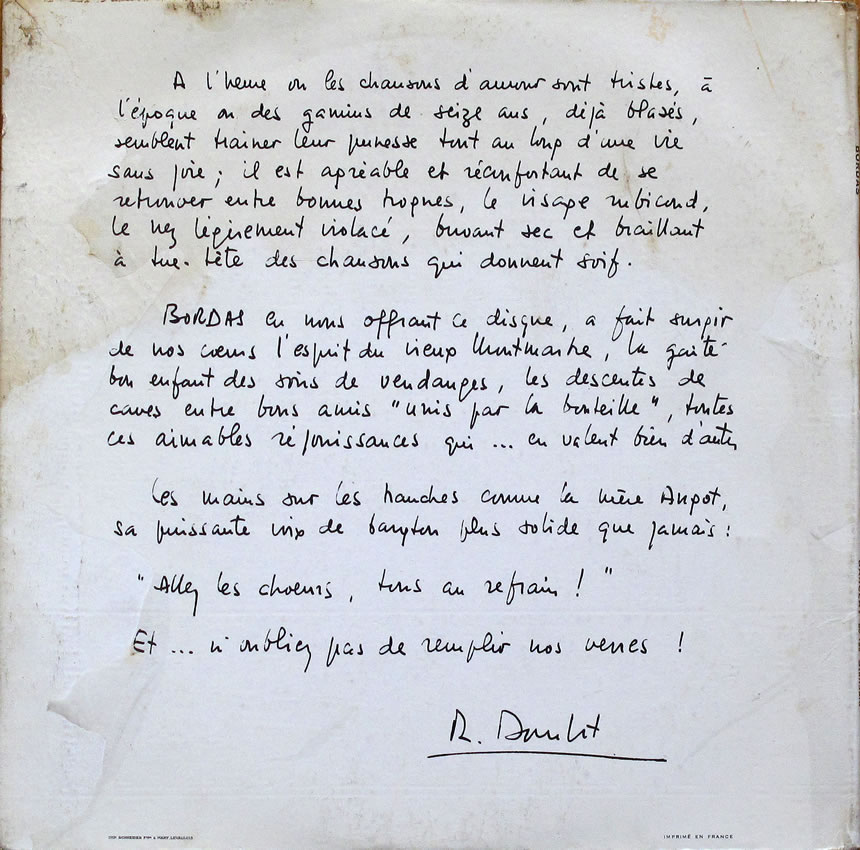 A l'heure où les chansons d'amour sont tristes, à
l'époque où des gamins de seize ans, déjà blasés,
semblent trainer leur jeunesse tout au long d'une vie
sans joie ; il est agréable et réconfortant de se
retrouver entre bonnes trognes, le visage rubicond,
le nez légèrement violacé, buvant sec et braillant
à tue-tête des chansons qui donnent soif.
BORDAS en nous offrant ce disque, a fait surgir
de nos cœurs l'esprit du vieux Montmartre, la gaité
bon enfant des soirs de vendanges, les descentes de
caves entre bons amis "unis par la bouteille", toutes
ces aimables réjouissances qui ... en valent bien d'autres
Les mains sur les hanches comme la mère Angot,
sa puissante voix de baryton plus solide que jamais :
"Allez les choeurs, tous au refrain ! "
Et ... n'oubliez pas de remplir nos verres !
R.
IMPRIMÉ EN FRANCE